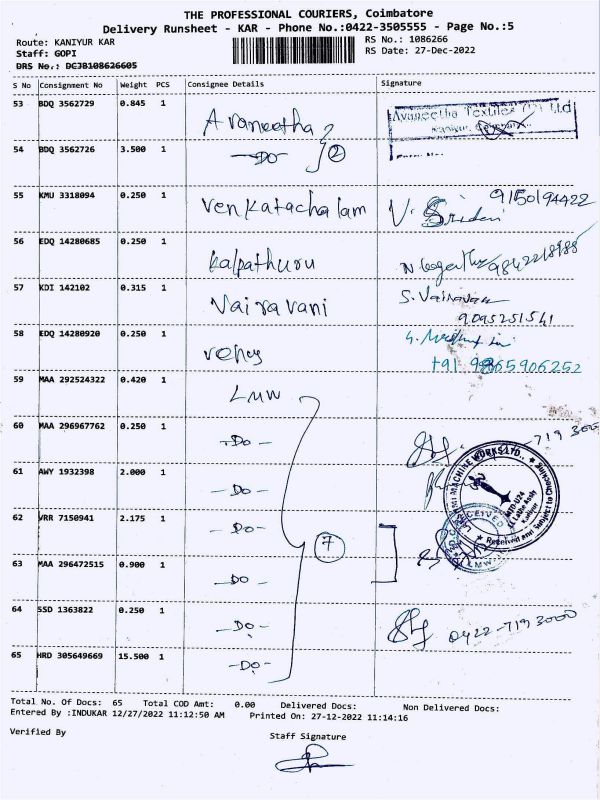 THE PROFESSIONAL COURIERS, Coimbatore
Delivery Runsheet - KAR - Phone No.:0422-3505555 - Page No.:5
Route: KANIYUR KAR
RS No.: 1086266
Staff: GOPI
RS Date: 27-Dec-2022
DRS No.: DCJB108626605
S No Consignment No Weight PCS Consignee Details Signature
53 BDQ 3562729 0.845 1 Avaneetha
Avaneetha Textiles (P) Ltd
Kaniyur,
54 BDQ 3562726 3.500 1 -Do- 2
55 KMU 3318094 0.250 1 Venkatachalam V. Sridevi 9150194422
56 EDQ 14280685 0.250 1 Kalpathuru
57 KDI 142102 0.315 1 Vairavani S. Vairavan
9095251541
58 EDQ 14280920 0.250 1
+91 9865906252
59 MAA 292524322 0.420 1 LMW
60 MAA 296967762 0.250 1 -Do- -719 3000
61 AWY 1932398 2.000 1 -Do-
62 VRR 7150941 2.175 1 -Do- 7
MACHINE WORKS LTD.
Received and Subject to Checking
RECEIVED
LMW
63 MAA 296472515 0.900 1 -Do-
64 SSD 1363822 0.250 1 -Do- 0422-719 3000
65 HRD 305649669 15.500 1 -Do-
Total No. Of Docs: 65 Total COD Amt: 0.00 Delivered Docs: Non Delivered Docs:
Entered By :INDUKAR 12/27/2022 11:12:50 AM Printed On: 27-12-2022 11:14:16
Verified By
Staff Signature